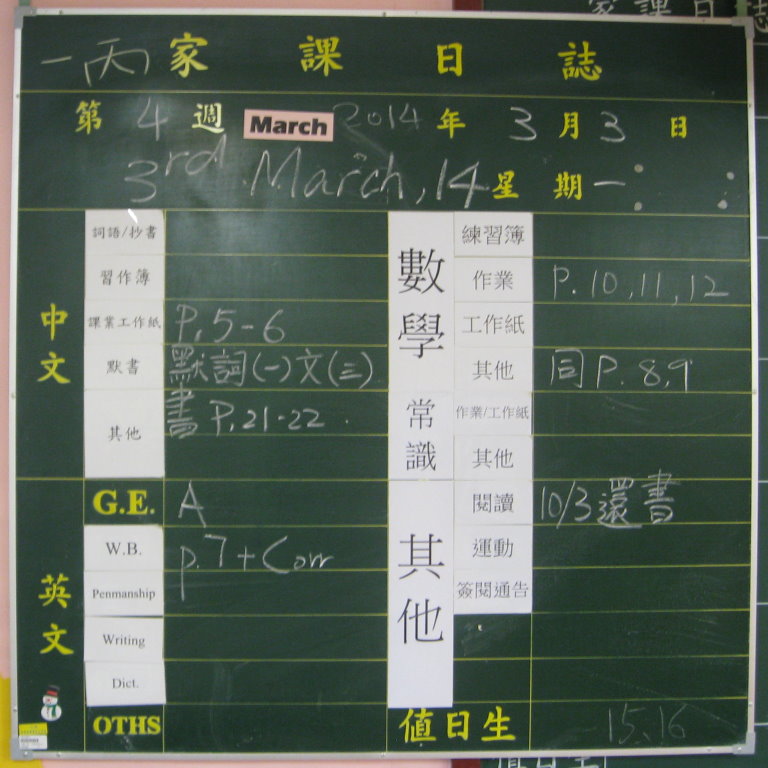 一丙 家課日誌
第 4 週 March 2014 年 3 月 3 日
3rd March, 14 星期一:
中文
詞語/抄書
習作簿
課業工作紙 P. 5-6
默書 默詞(一)文(三)
其他 書 P. 21-22
英文
G.E. A
W.B. p. 7 + Corr
Penmanship
Writing
Dict.
OTHS
數學
練習簿
作業 P. 10, 11, 12
工作紙
其他 同 P. 8, 9
常識
作業/工作紙
其他
其他
閱讀 10/3 還書
運動
簽閱通告
值日生 15, 16
家課日誌
值日生